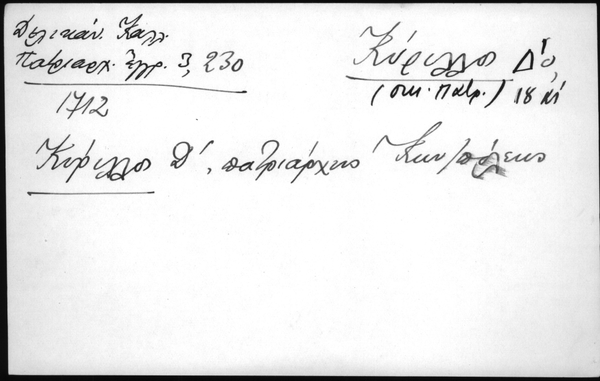 Δελικάν. Καλλ.
Πατριαρχ. Ἔγγρ. 3, 230
1712
Κύριλλος Δ΄,
(οικ. Πατρ.) 18 αἰ
Κύριλλος Δ΄, πατριάρχης Κων/πόλεως